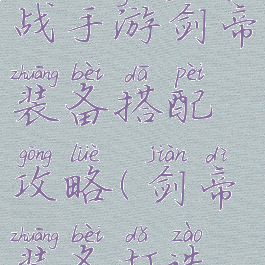 战手游剑帝
zhuāng bèi dā pèi
装备搭配
gōng lüè jiàn dì
攻略(剑帝
zhuāng bèi dǎ zào
装备打造